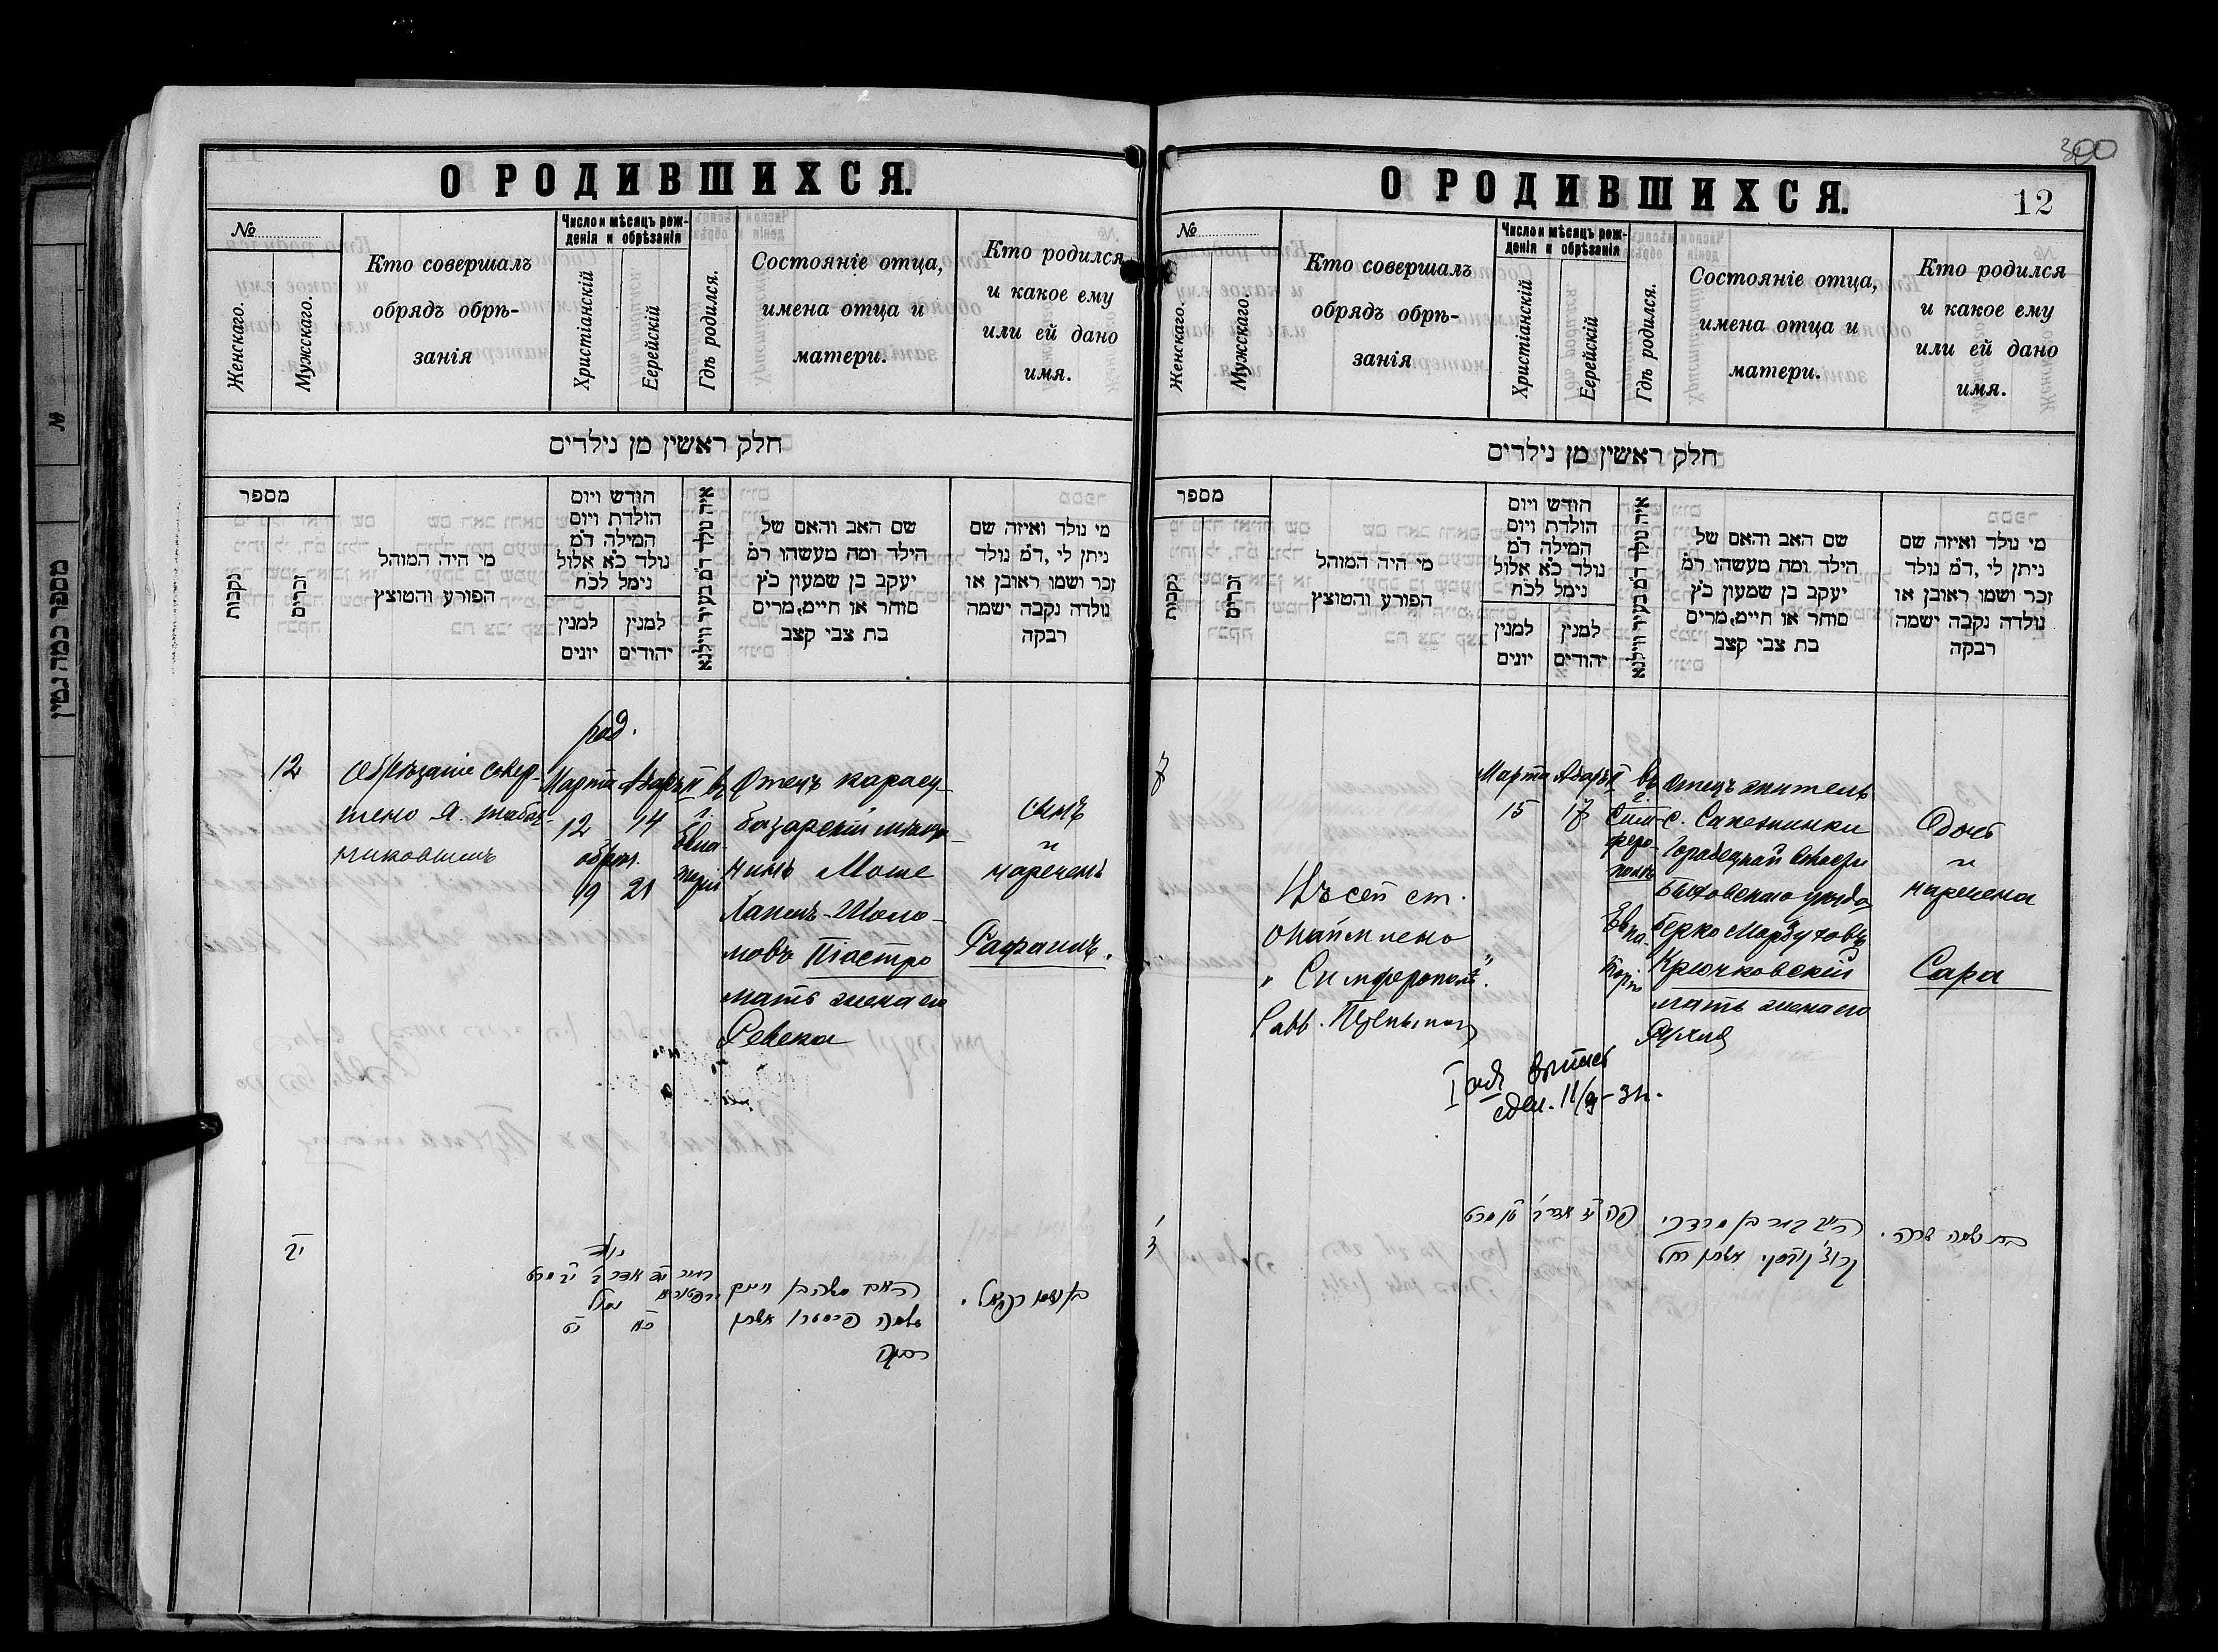 300
О РОДИВШИХСЯ.
№
Женскаго.
Мужскаго.
Кто совершалъ
обрядъ обрѣ-
занія
Число и мѣсяцъ рож-
денія и обрѣзанія
Христіанскій
Еерейскій
Гдѣ родился.
Состояніе отца,
имена отца и
матери.
Кто родился
и какое ему
или ей дано
имя.
חלק ראשין מן נילדים
מספר
נקבות
זכרים
מי היה המוהל
הפורע והטוצץ
הודש ויום
הולדת ויום
המילה דמ
נולד כא אלול
נימל לכח
למנין
יונים
למנין
יהודים
איה נולד דמ בעיר ווילנא
שם האב והאם של
הילד ומה מעשהו רמ
יעקב בן שמעון כץ
סוחר או חיים, מרים
בת צבי קצב
מי נולד ואיזה שם
ניתן לי, דמ נולד
זכר ושמו ראובן או
נולדה נקבה ישמה
רבקה
род.
12
Обрѣзаніе совер-
шено Я. Табач-
никовымъ
Марта
12
обрѣз.
19
Адаръ II
14
21
въ
г.
Евпа-
торіи
Отецъ карасу-
базарскій мѣща-
нинъ Моше
Хаимъ-Шоло-
мовъ Піастро
мать жена его
Ревека
сынъ
и
нареченъ
Рафаилъ.
יב
נולד
יב מרט
יד אדר ב
נמול
יט
כא
האב משה בן חיים
שלמה פיסטרו אשתו
רבקה
בן ושמו רפאל.
О РОДИВШИХСЯ.
12
№
Женскаго.
Мужскаго.
Кто совершалъ
обрядъ обрѣ-
занія
Число и мѣсяцъ рож-
денія и обрѣзанія
Христіанскій
Еерейскій
Гдѣ родился.
Состояніе отца,
имена отца и
матери.
Кто родился
и какое ему
или ей дано
имя.
חלק ראשין מן נילדים
מספר
נקבות
זכרים
מי היה המוהל
הפורע והטוצץ
הודש ויום
הולדת ויום
המילה דמ
נולד כא אלול
נימל לכח
למנין
יונים
למנין
יהודים
איה נולד דמ בעיר ווילנא
שם האב והאם של
הילד ומה מעשהו רמ
יעקב בן שמעון כץ
סוחר או חיים, מרים
בת צבי קצב
מי נולד ואיזה שם
ניתן לי, דמ נולד
זכר ושמו ראובן או
נולדה נקבה ישמה
רבקה
7
Въ сей ст.
"Симферополѣ".
Равв.
Марта
15
Адаръ II
17
въ
г.
Сим-
феро-
полѣ
Евпа-
торіи
Отецъ житель
с.
Быховскаго уѣзда
Берко
Крючковскій
мать жена его
Рухля
Дочь
и
наречена
Сара
сдел. 11/9-31.
ז
פה יז אדר ב טו מרט
האב בער בן מרדכי
קרוצקווסקי אשתו רחל
בת ושמה שרה.